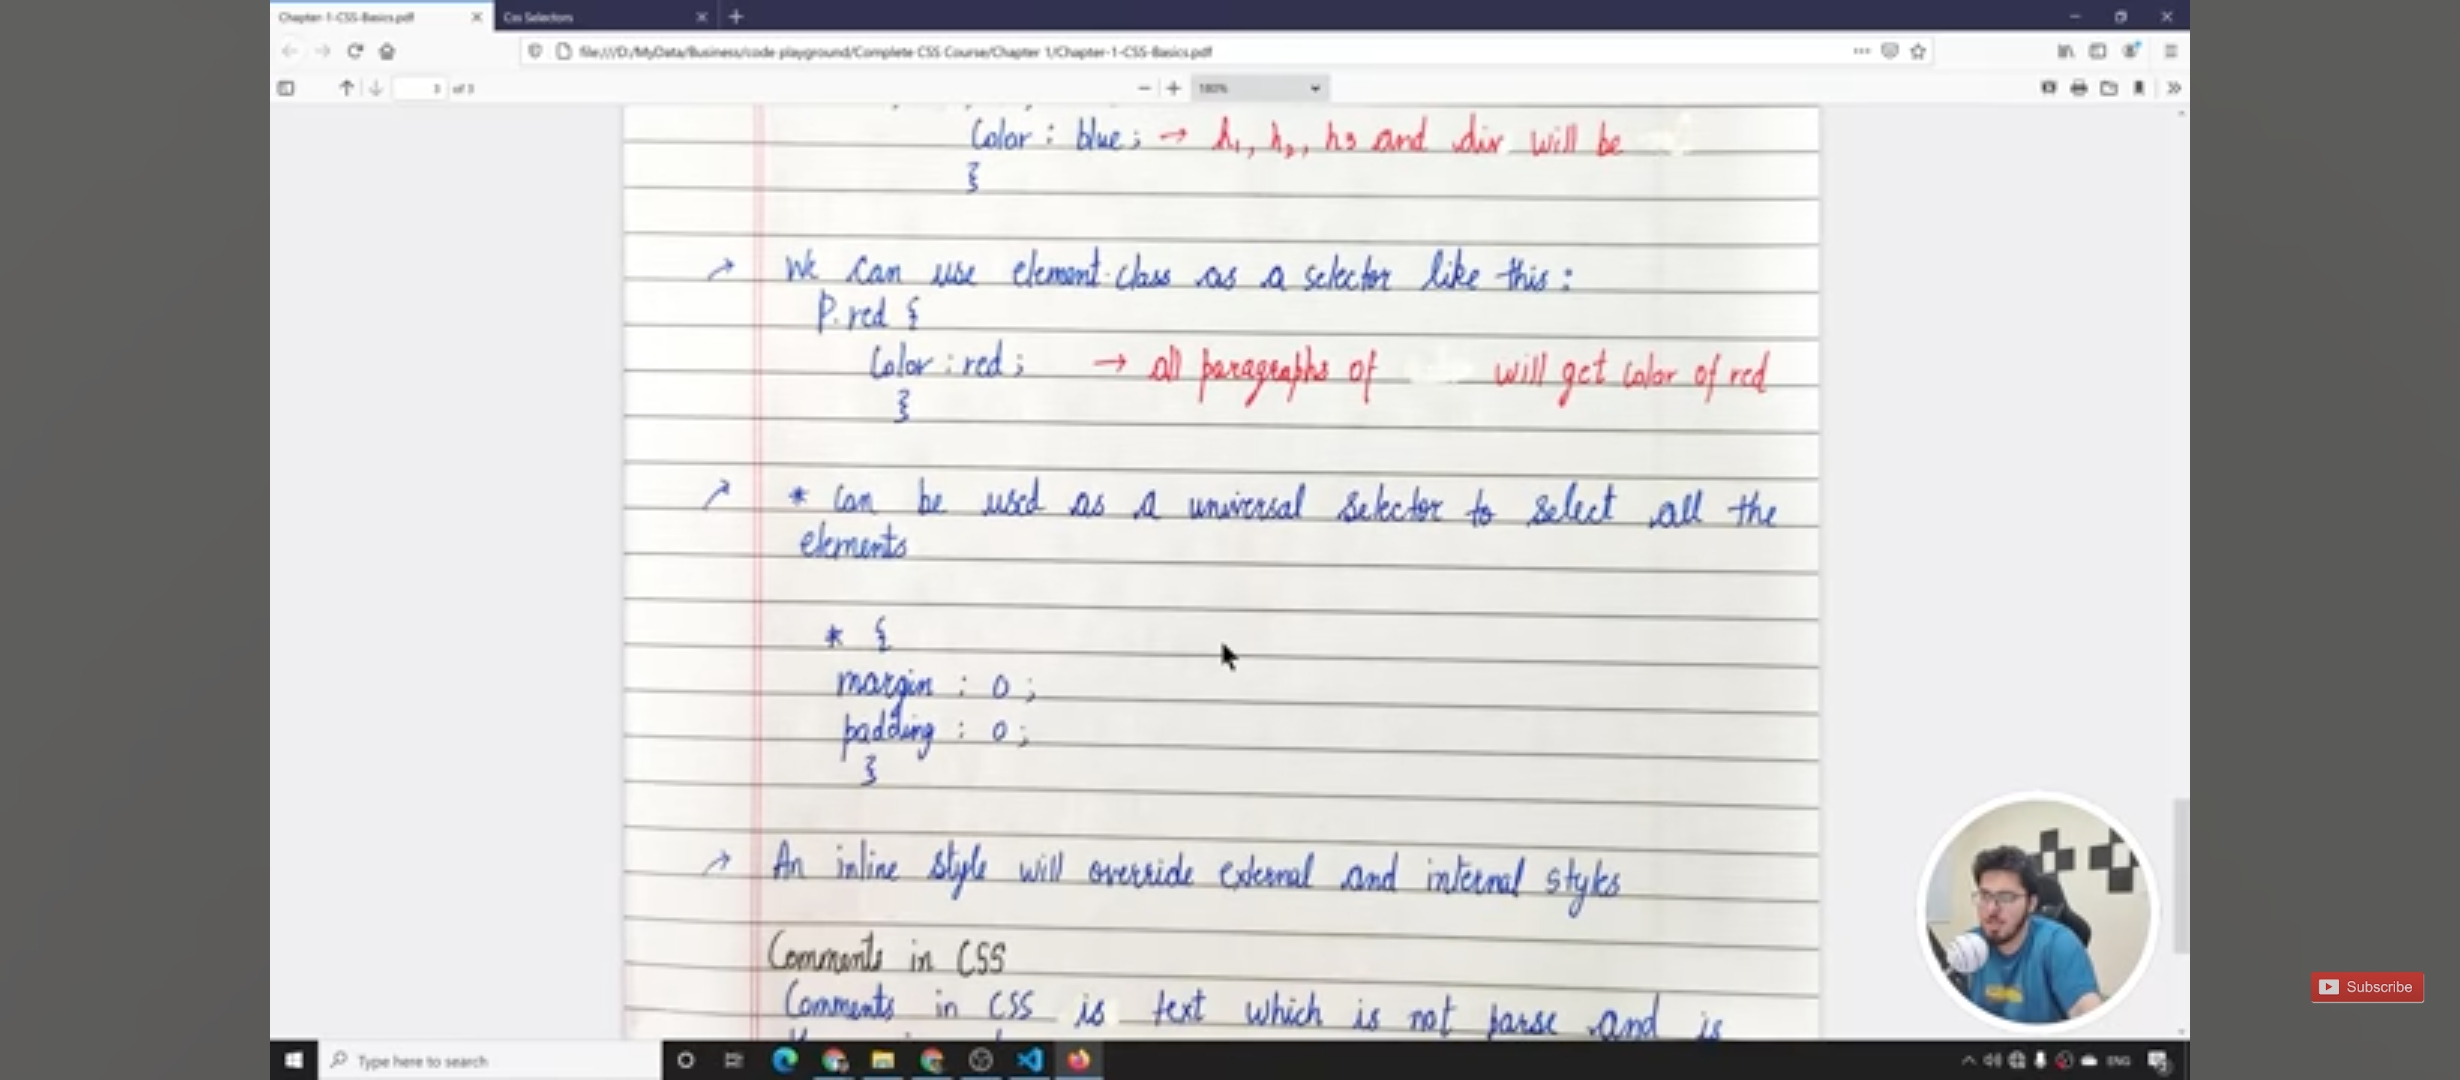 Chapter-1-CSS-Basics.pdf
Css Selectors
file:///D:/MyData/Business/code playground/Complete CSS Course/Chapter 1/Chapter-1-CSS-Basics.pdf
3 of 3
180%
Color : blue ; → h1, h2, h3 and div will be
}
→ We can use element.class as a selector like this :
P.red {
Color : red ; → all paragraphs of will get color of red
}
→ * can be used as a universal selector to select all the
elements
* {
margin : 0 ;
padding : 0 ;
}
→ An inline style will override external and internal styles
Comments in CSS
Comments in CSS is text which is not parse and is
Subscribe
Type here to search
ENG